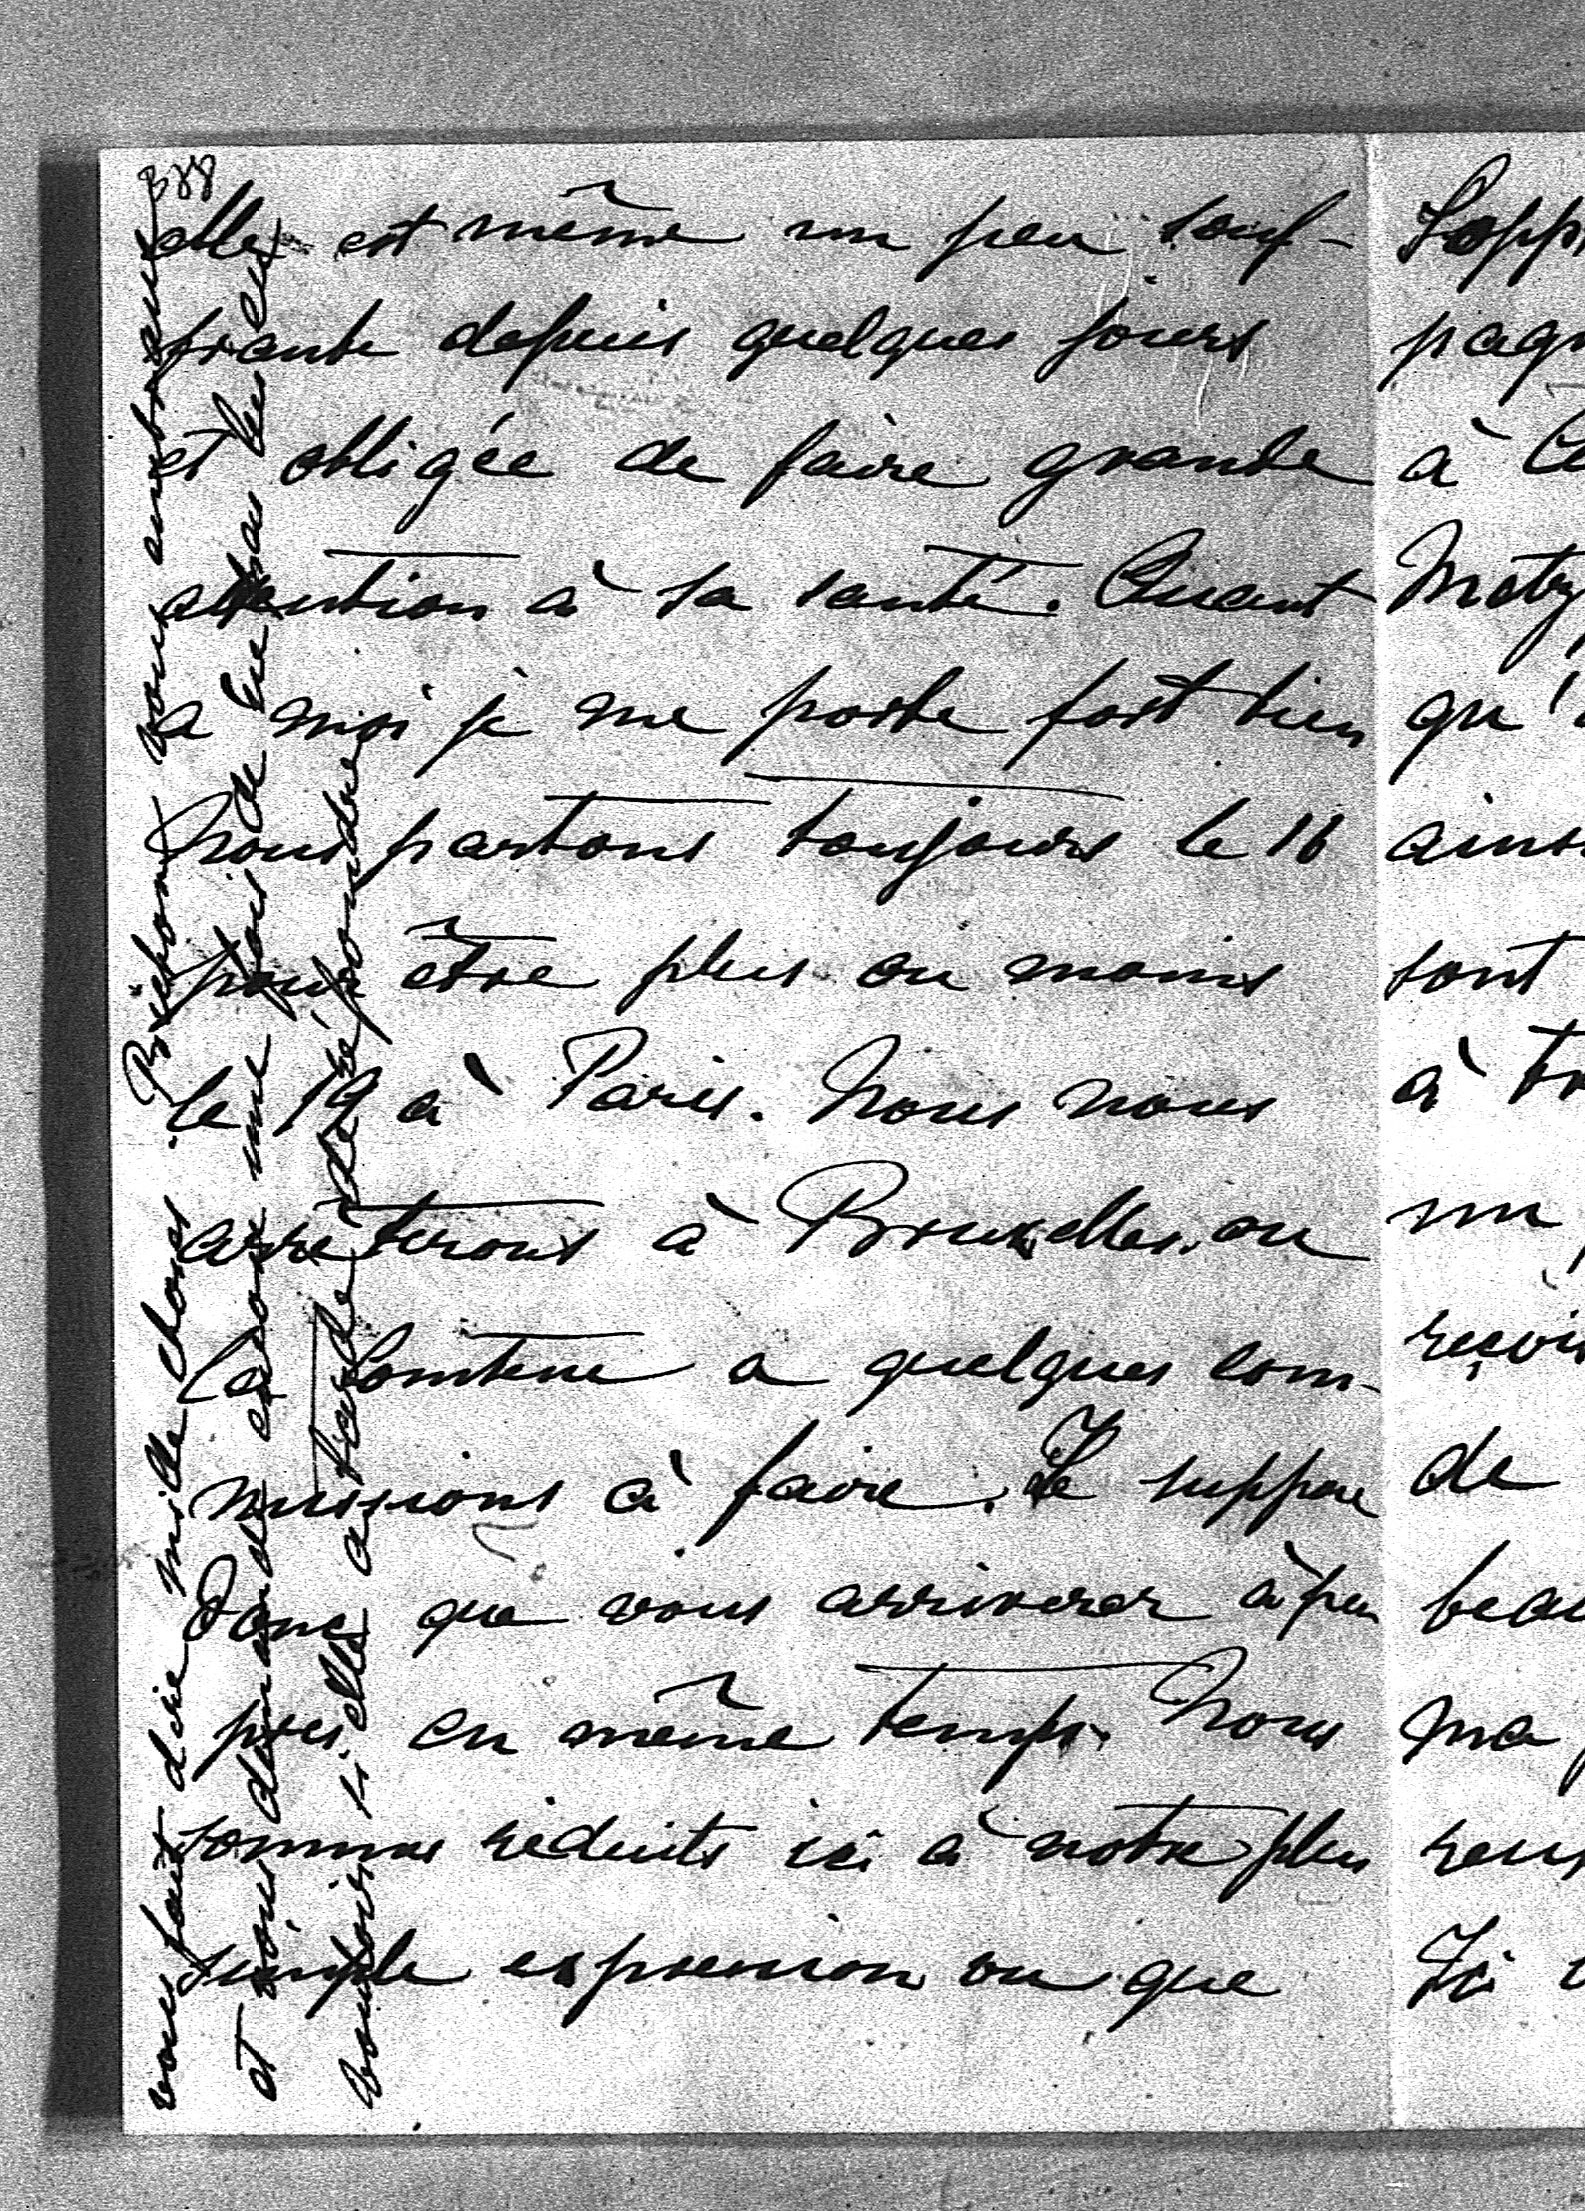 388
elle est même un peu souf-
frante depuis quelques jours
et obligée de faire grande
attention à sa santé. Quant
a moi je me porte fort bien
Nous partons toujours le 16
pour être plus ou moins
le 19 à Paris. Nous nous
arrêterons à Bruxelles. ou
la Comtesse a quelques com-
missions à faire. Je suppose
Donc que vous arriverez à peu
pres en même temps. Nous
sommes reduits ici à notre plus
simple expression vu que
vous fait dire mille choses. Bichonne vous embrasse
et vous demande encore une fois de ne pas lui en
vouloir si elle a tardé de répondre
à
qu'
sont
à
un
de
ma